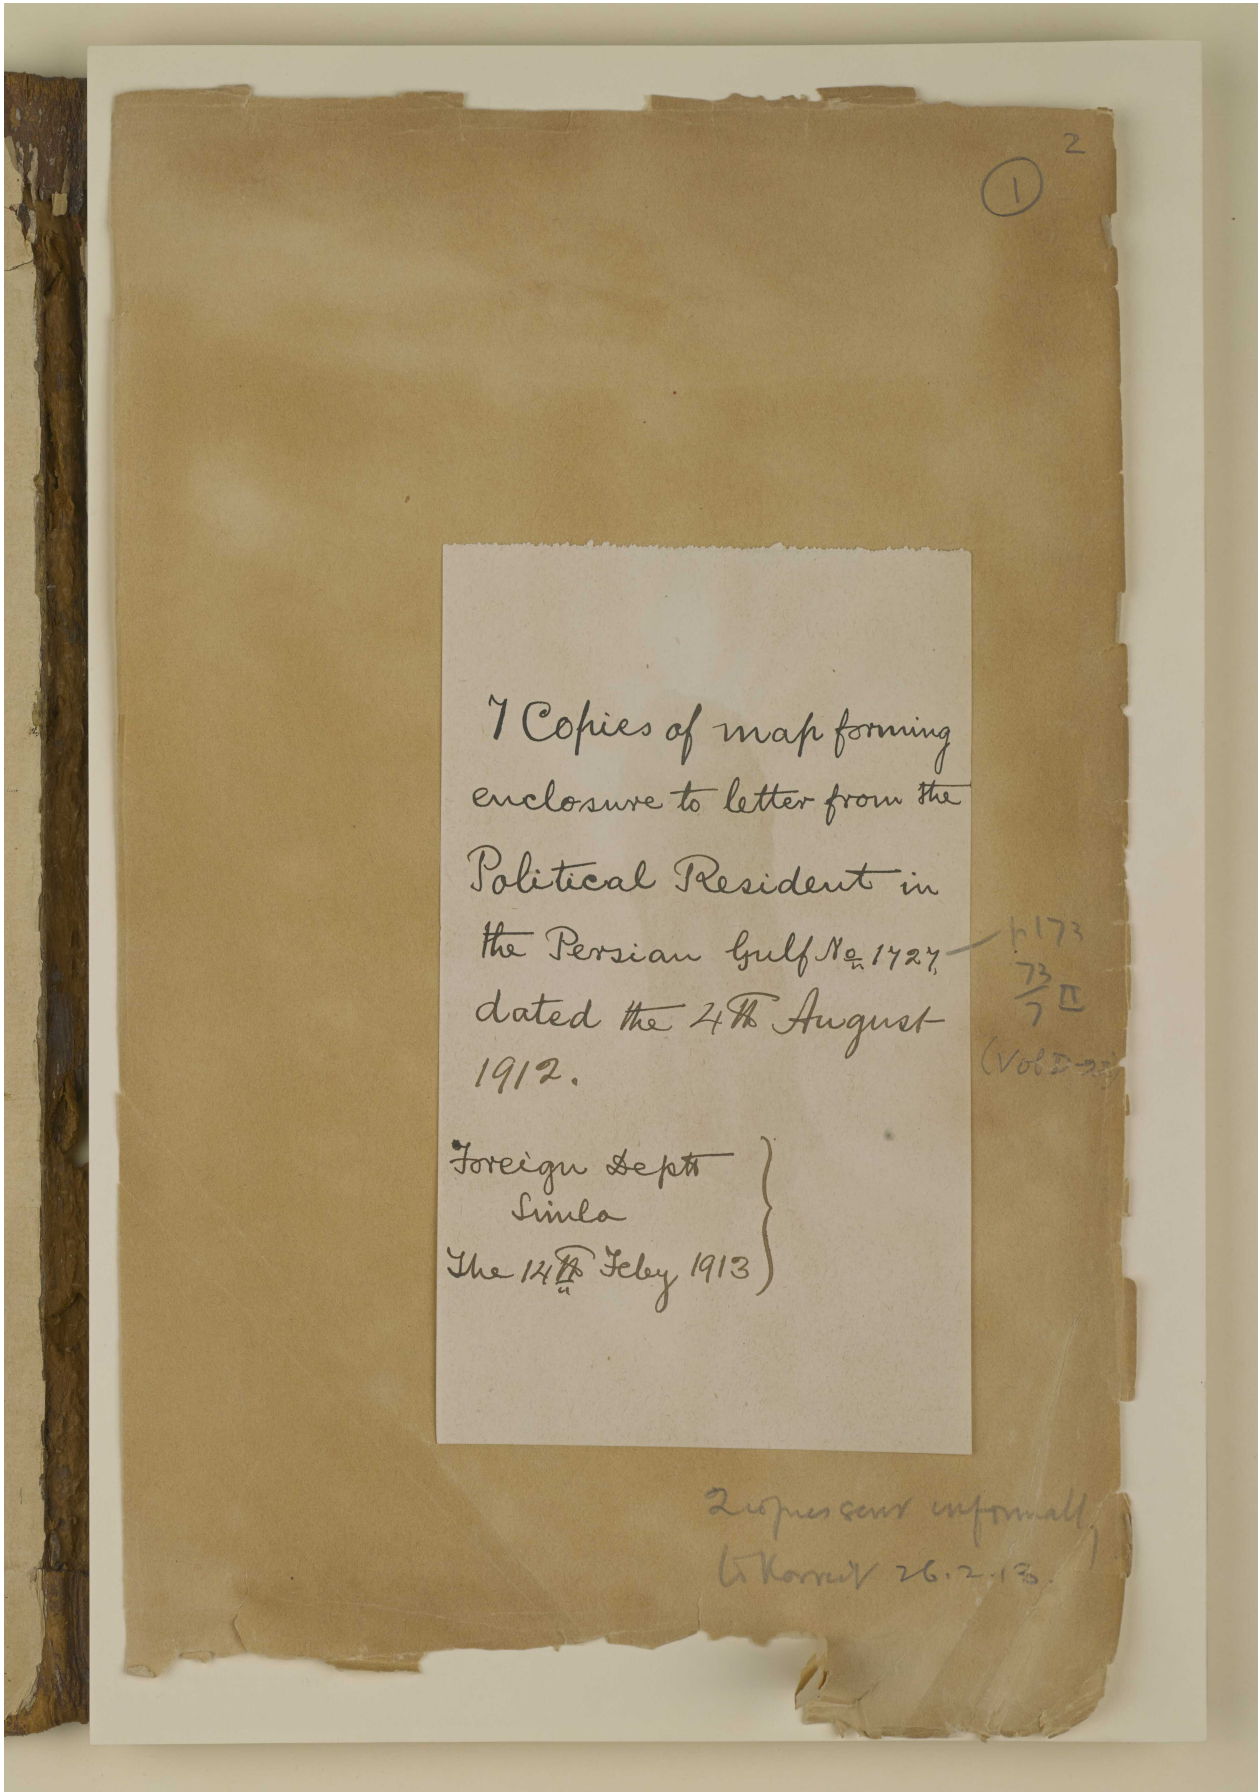 2
1
7 Copies of map forming
enclosure to letter from the
Political Resident in
the Persian Gulf No 1727,
dated the 4th August
1912.
p173
73/7 II
(Vol D-
Foreign Deptt
Simla
The 14th Feby 1913
2 copies sent informally
to Koweit 26.2.13.